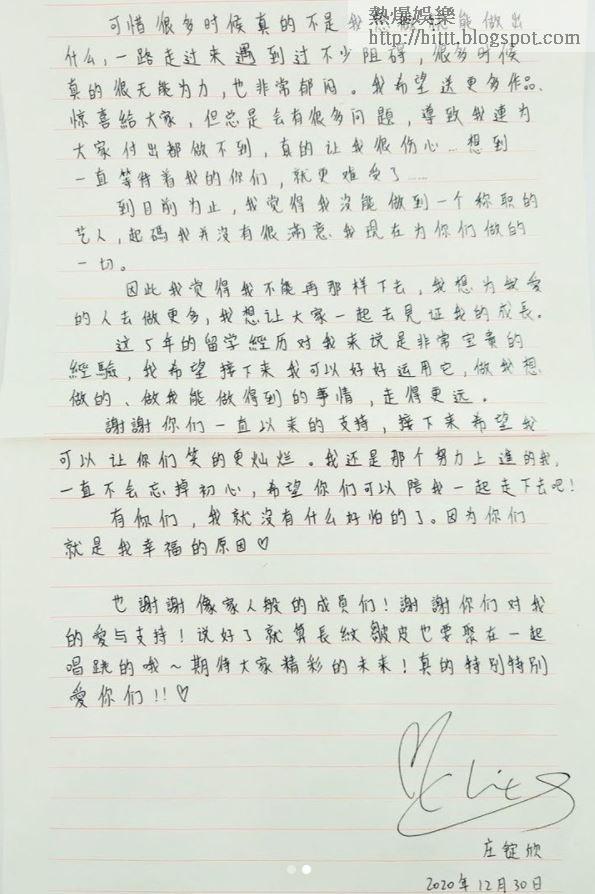 熱爆娛樂
http://hittt.blogspot.com
可惜很多时候真的不是我想 能做出
什么,一路走过来遇到过不少阻碍,很多时候
真的很无能为力,也非常郁闷。我希望送更多作品、
惊喜給大家,但总是会有很多问題,導致我連为
大家付出都做不到,真的让我很伤心…想到
一直等待着我的你们,就更难受了……
到目前为止,我觉得我沒能做到一个称职的
艺人,起碼我并沒有很滿意我現在为你们做的
一切。
因此我觉得我不能再那样下去,我想为我爱
的人去做更多,我想让大家一起去見证我的成長。
这5年的留学經历对我来说是非常宝貴的
經驗,我希望接下来我可以好好运用它,做我想
做的、做我能做得到的事情,走得更远。
謝謝你们一直以来的支持,接下来希望我
可以让你们笑的更灿烂。我还是那个努力上進的我,
一直不会忘掉初心,希望你们可以陪我一起走下去吧!
有你们,我就沒有什么好怕的了。因为你们
就是我幸福的原因♡
也謝謝像家人般的成員们!謝謝你们对我
的愛与支持!说好了就算長紋皺皮也要聚在一起
唱跳的哦~期待大家精彩的未来!真的特別特別
愛你们!!♡
庄錠欣
2020年12月30日